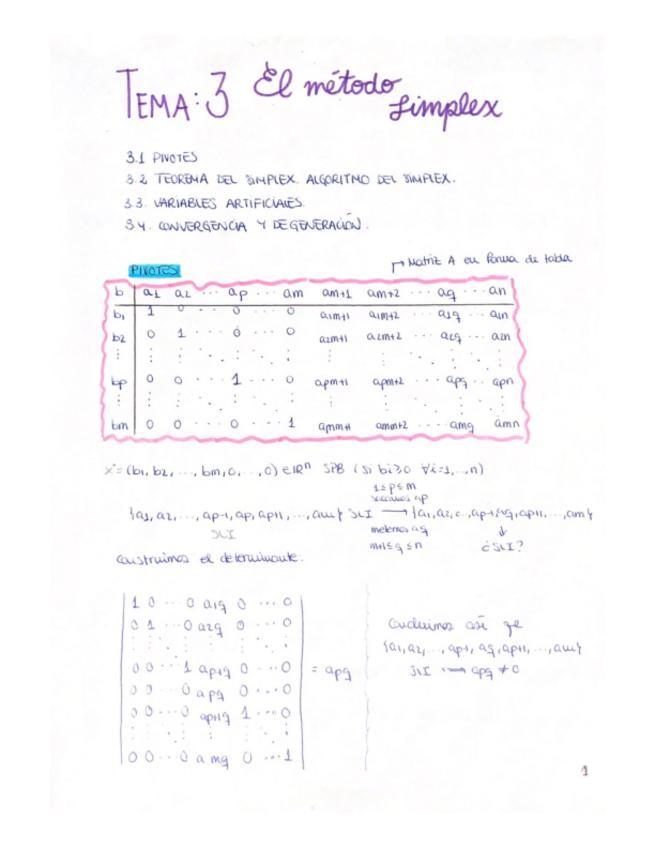 TEMA: 3 El método simplex
3.1 PIVOTES
3.2 TEOREMA DEL SIMPLEX. ALGORITMO DEL SIMPLEX.
3.3. VARIABLES ARTIFICIALES.
3.4. CONVERGENCIA Y DEGENERACIÓN.
PIVOTES
→ Matriz A en forma de tabla
b a1 a2 ... ap ... am am+1 am+2 ... aq ... an
b1 1 0 ... 0 ... 0 a1m+1 a1m+2 ... a1q ... a1n
b2 0 1 ... 0 ... 0 a2m+1 a2m+2 ... a2q ... a2n
bp 0 0 ... 1 ... 0 apm+1 apm+2 ... apq ... apn
bm 0 0 ... 0 ... 1 amm+1 amm+2 ... amq amn
x=(b1, b2, ..., bm, 0, ..., 0) ∈ IRⁿ SPB (si bi≥0 ∀i=1,...,n)
1≤p≤m
sacamos ap
{a1, a2, ..., ap-1, ap, ap+1, ..., am} SLI → {a1, a2, ..., ap-1, aq, ap+1, ..., am}
SLI
metemos aq
m+1≤q≤n
↓
¿SLI?
Construimos el determinante.
1 0 ... 0 a1q 0 ... 0
0 1 ... 0 a2q 0 ... 0
0 0 ... 1 ap-1q 0 ... 0
0 0 ... 0 apq 0 ... 0
0 0 ... 0 ap+1q 1 ... 0
0 0 ... 0 amq 0 ... 1
= apq
Concluimos así qe
{a1, a2, ..., ap-1, aq, ap+1, ..., am}
SLI ⟷ apq ≠ 0
1